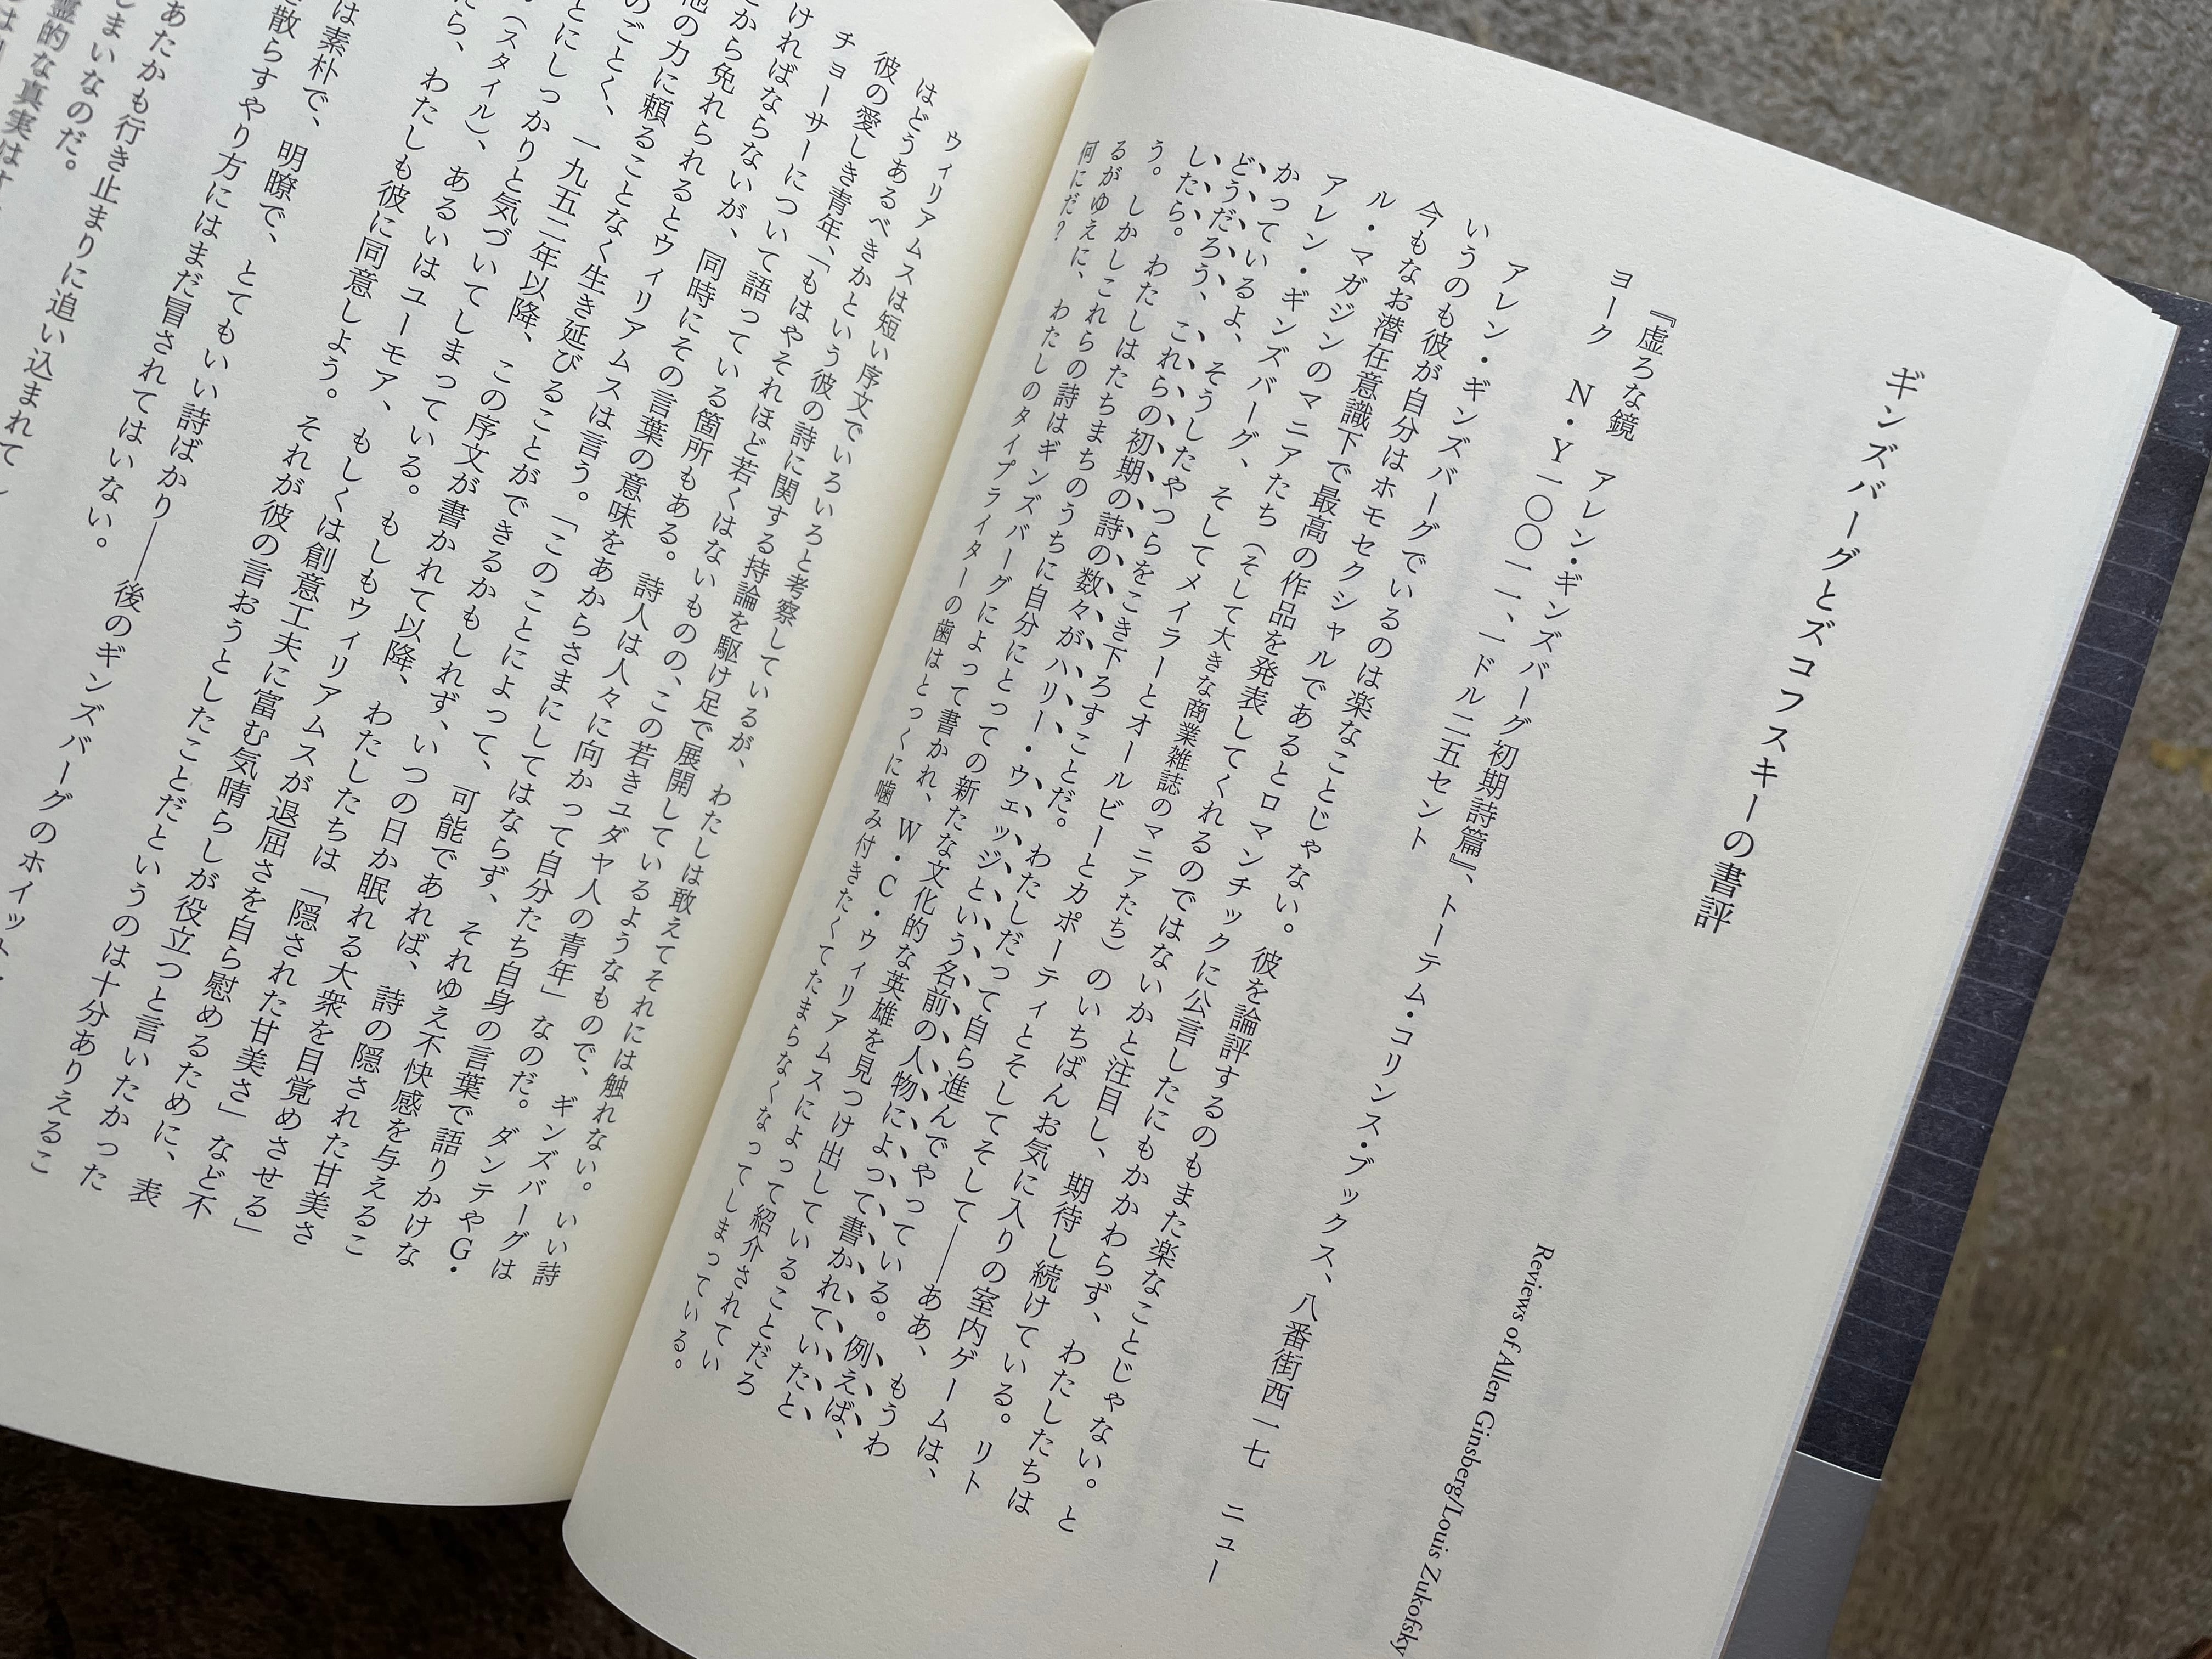 ギンズバーグとズコフスキーの書評
Reviews of Allen Ginsberg/Louis Zukofsky
『虚ろな鏡　アレン・ギンズバーグ初期詩篇』、トーテム・コリンス・ブックス、八番街西一七　ニュー
ヨーク　N・Y一〇〇一一、一ドル二五セント
アレン・ギンズバーグでいるのは楽なことじゃない。彼を論評するのもまた楽なことじゃない。と
いうのも彼が自分はホモセクシャルであるとロマンチックに公言したにもかかわらず、わたしたちは
今もなお潜在意識下で最高の作品を発表してくれるのではないかと注目し、期待し続けている。リト
ル・マガジンのマニアたち（そして大きな商業雑誌のマニアたち）のいちばんお気に入りの室内ゲームは、
アレン・ギンズバーグ、そしてメイラーとオールビーとカポーティとそしてそして――ああ、もうわ
かっているよ、そうしたやつらをこき下ろすことだ。わたしだって自ら進んでやっている。例えば、
どうだろう、これらの初期の詩の数々がハリー・ウェッジという名前の人物によって書かれていたと
したら。わたしはたちまちのうちに自分にとっての新たな文化的な英雄を見つけ出していることだろ
う。しかしこれらの詩はギンズバーグによって書かれ、W・C・ウィリアムスによって紹介されてい
るがゆえに、わたしのタイプライターの歯はとっくに噛み付きたくてたまらなくなってしまっている。
何にだ？
ウィリアムスは短い序文でいろいろと考察しているが、わたしは敢えてそれには触れない。いい詩
はどうあるべきかという彼の詩に関する持論を駆け足で展開しているようなもので、ギンズバーグは
彼の愛しき青年、「もはやそれほど若くはないものの、この若きユダヤ人の青年」なのだ。ダンテやG・
チョーサーについて語っている箇所もある。詩人は人々に向かって自分たち自身の言葉で語りかけな
ければならないが、同時にその言葉の意味をあからさまにしてはならず、それゆえ不快感を与えるこ
とから免れられるとウィリアムスは言う。「このことによって、可能であれば、詩の隠された甘美さ
他の力に頼ることなく生き延びることができるかもしれず、いつの日か眠れる大衆を目覚めさせる」
のごとく、一九五二年以降、この序文が書かれて以降、わたしたちは「隠された甘美さ」など不
とにしっかりと気づいてしまっている。もしもウィリアムスが退屈さを自ら慰めるために、表
（スタイル）、あるいはユーモア、もしくは創意工夫に富む気晴らしが役立つと言いたかった
ら、わたしも彼に同意しよう。それが彼の言おうとしたことだというのは十分ありえるこ
は素朴で、明瞭で、とてもいい詩ばかり――後のギンズバーグのホイット
散らすやり方にはまだ冒されてはいない。
あたかも行き止まりに追い込まれて
まいなのだ。
霊的な真実は